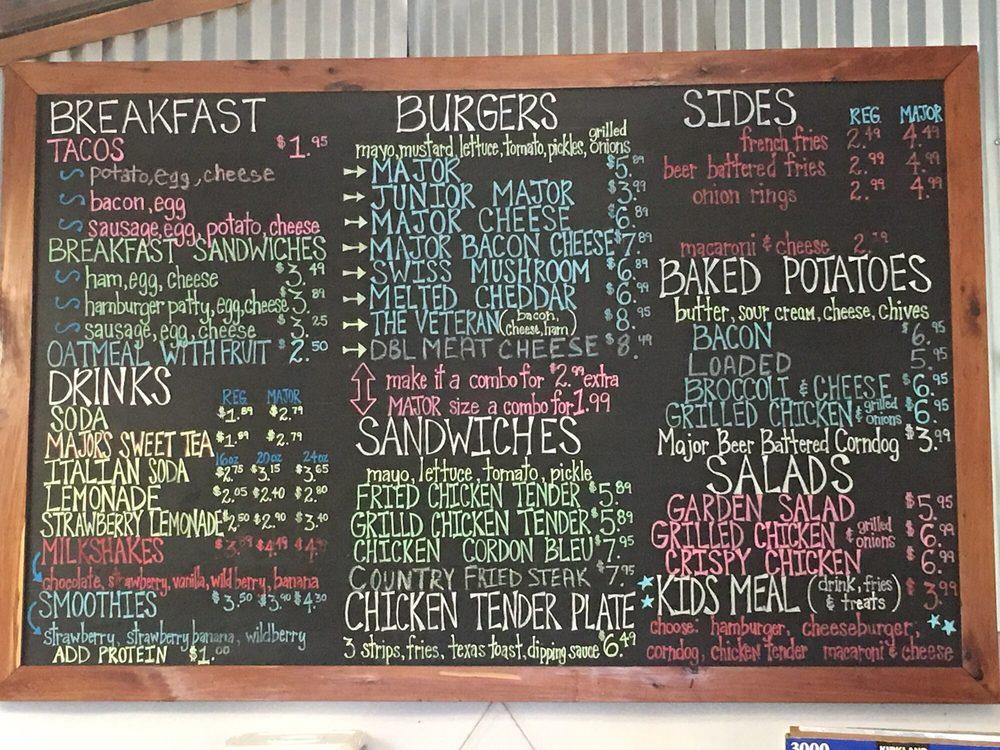 BREAKFAST
TACOS $1.95
potato, egg, cheese
bacon, egg
sausage, egg, potato, cheese
BREAKFAST SANDWICHES
ham, egg, cheese $3.49
hamburger patty, egg, cheese $3.89
sausage, egg, cheese $3.25
OATMEAL WITH FRUIT $2.50
DRINKS
REG. MAJOR
SODA $1.89 $2.79
MAJOR'S SWEET TEA $1.89 $2.79
16oz 20oz 24oz
ITALIAN SODA $2.75 $3.15 $3.65
LEMONADE $2.05 $2.40 $2.80
STRAWBERRY LEMONADE $2.50 $2.90 $3.40
MILKSHAKES
chocolate, strawberry, vanilla, wild berry, banana
SMOOTHIES $3.50 $3.90 $4.30
strawberry, strawberry banana, wildberry
ADD PROTEIN $1.00
BURGERS
mayo, mustard, lettuce, tomato, pickles, grilled onions
MAJOR $5.89
JUNIOR MAJOR $3.99
MAJOR CHEESE $6.89
MAJOR BACON CHEESE $7.89
SWISS MUSHROOM $6.89
MELTED CHEDDAR $6.99
THE VETERAN (bacon, cheese, ham) $8.95
DBL MEAT CHEESE $8.49
make it a combo for $2.99 extra
MAJOR size a combo for 1.99
SANDWICHES
mayo, lettuce, tomato, pickle
FRIED CHICKEN TENDER $5.89
GRILLD CHICKEN TENDER $5.89
CHICKEN CORDON BLEU $7.95
COUNTRY FRIED STEAK $7.95
CHICKEN TENDER PLATE
3 strips, fries, texas toast, dipping sauce $6.49
SIDES
REG. MAJOR
french fries 2.49 4.49
beer battered fries 2.99 4.99
onion rings 2.99 4.99
macaroni & cheese
BAKED POTATOES
butter, sour cream, cheese, chives
BACON $6.95
LOADED 5.95
BROCCOLI & CHEESE $6.95
GRILLED CHICKEN & grilled onions $6.95
Major Beer Battered Corndog $3.99
SALADS
GARDEN SALAD $5.95
GRILLED CHICKEN & grilled onions $6.99
CRISPY CHICKEN $6.99
KIDS MEAL (drink, fries & treats) $3.99
choose: hamburger, cheeseburger,
corndog, chicken tender macaroni & cheese
3000
KIRKLAND